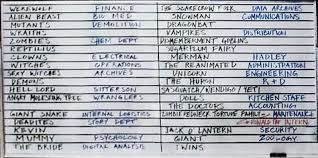 WEREWOLF FINANCE THE SCARECROW FOLK DATA ARCHIVES
ALIEN BEAST BIO MED SNOWMAN COMMUNICATIONS
MUTANTS DEMOLITION DRAGONBAT
WRAITHS VAMPIRES DISTRIBUTION
ZOMBIES CHEM DEPT DISMEMBERMENT GOBLINS
REPTILIUS SUGARPLUM FAIRY
CLOWNS ELECTRICAL MERMAN HADLEY
WITCHES OPERATIONS THE REANIMATED ADMINISTRATION
SEXY WITCHES ARCHIVES UNICORN ENGINEERING
DEMONS THE HURON R&D
HELL LORD SITTERSON SASQUATCH/WENDIGO/YETI
ANGRY MOLESTING TREE WRANGLERS DOLLS KITCHEN STAFF
THE DOCTORS ACCOUNTING
GIANT SNAKE INTERNAL LOGISTICS ZOMBIE REDNECK TORTURE FAMILY MAINTENANCE
DEADITES STORY DEPT RONALD THE INTERN
KEVIN JACK O LANTERN SECURITY
MUMMY PSYCHOLOGY GIANT ZOOLOGY
THE BRIDE DIGITAL ANALYSIS TWINS